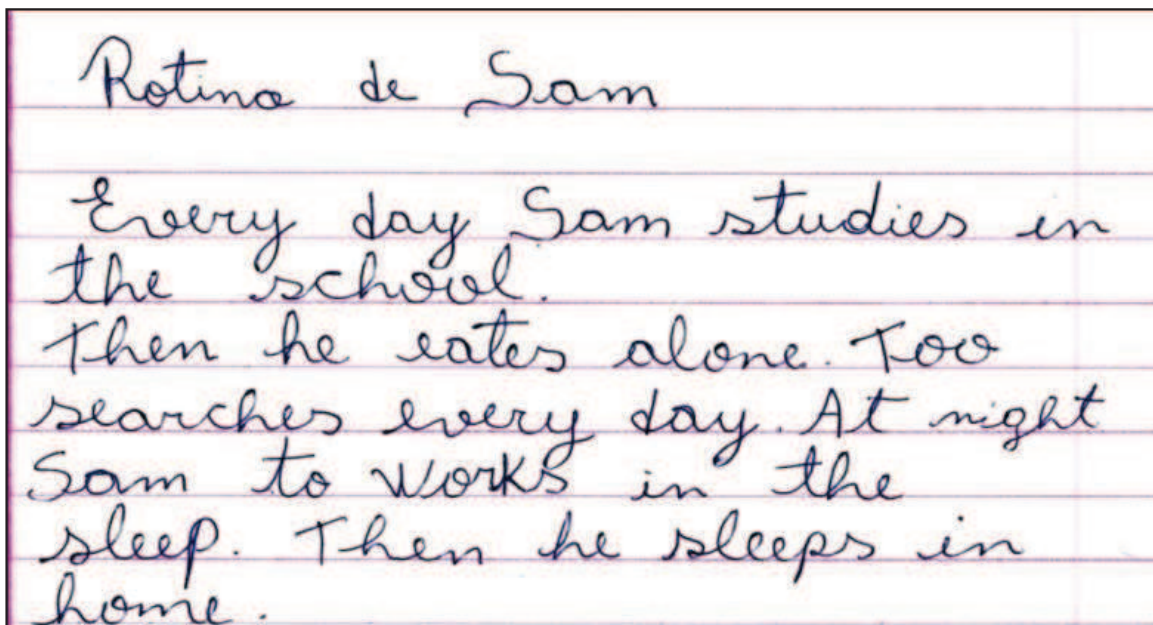 Rotina de Sam
Every day Sam studies in
the school.
Then he eates alone. Too
searches every day. At night
Sam to works in the
sleep. Then he sleeps in
home.